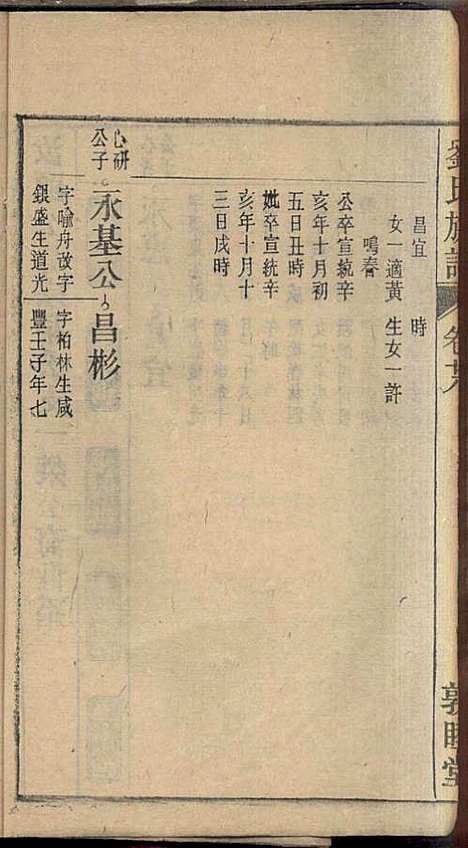 劉氏族譜
卷
敦睦堂
昌宜
時
女一適黃
生女一許
鳴春
公卒宣統辛
亥年十月初
五日丑時
妣卒宣統辛
亥年十月十
三日戌時
心研
公子
永基公
昌彬
字喻舟改字
銀盛生道光
字柏林生咸
豐壬子年七